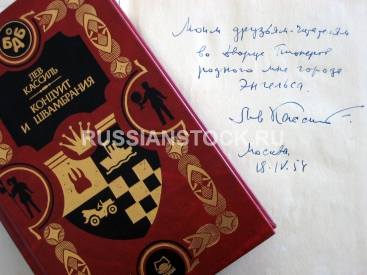 ЛЕВ
КАССИЛЬ
КОНДУИТ
И ШВАМБРАНИЯ
Моим друзьям-читателям
во дворце Пионеров
родного мне города
Энгельса.
Лев Кассиль
Москва.
18.IV.54
RUSSIANSTOCK.RU